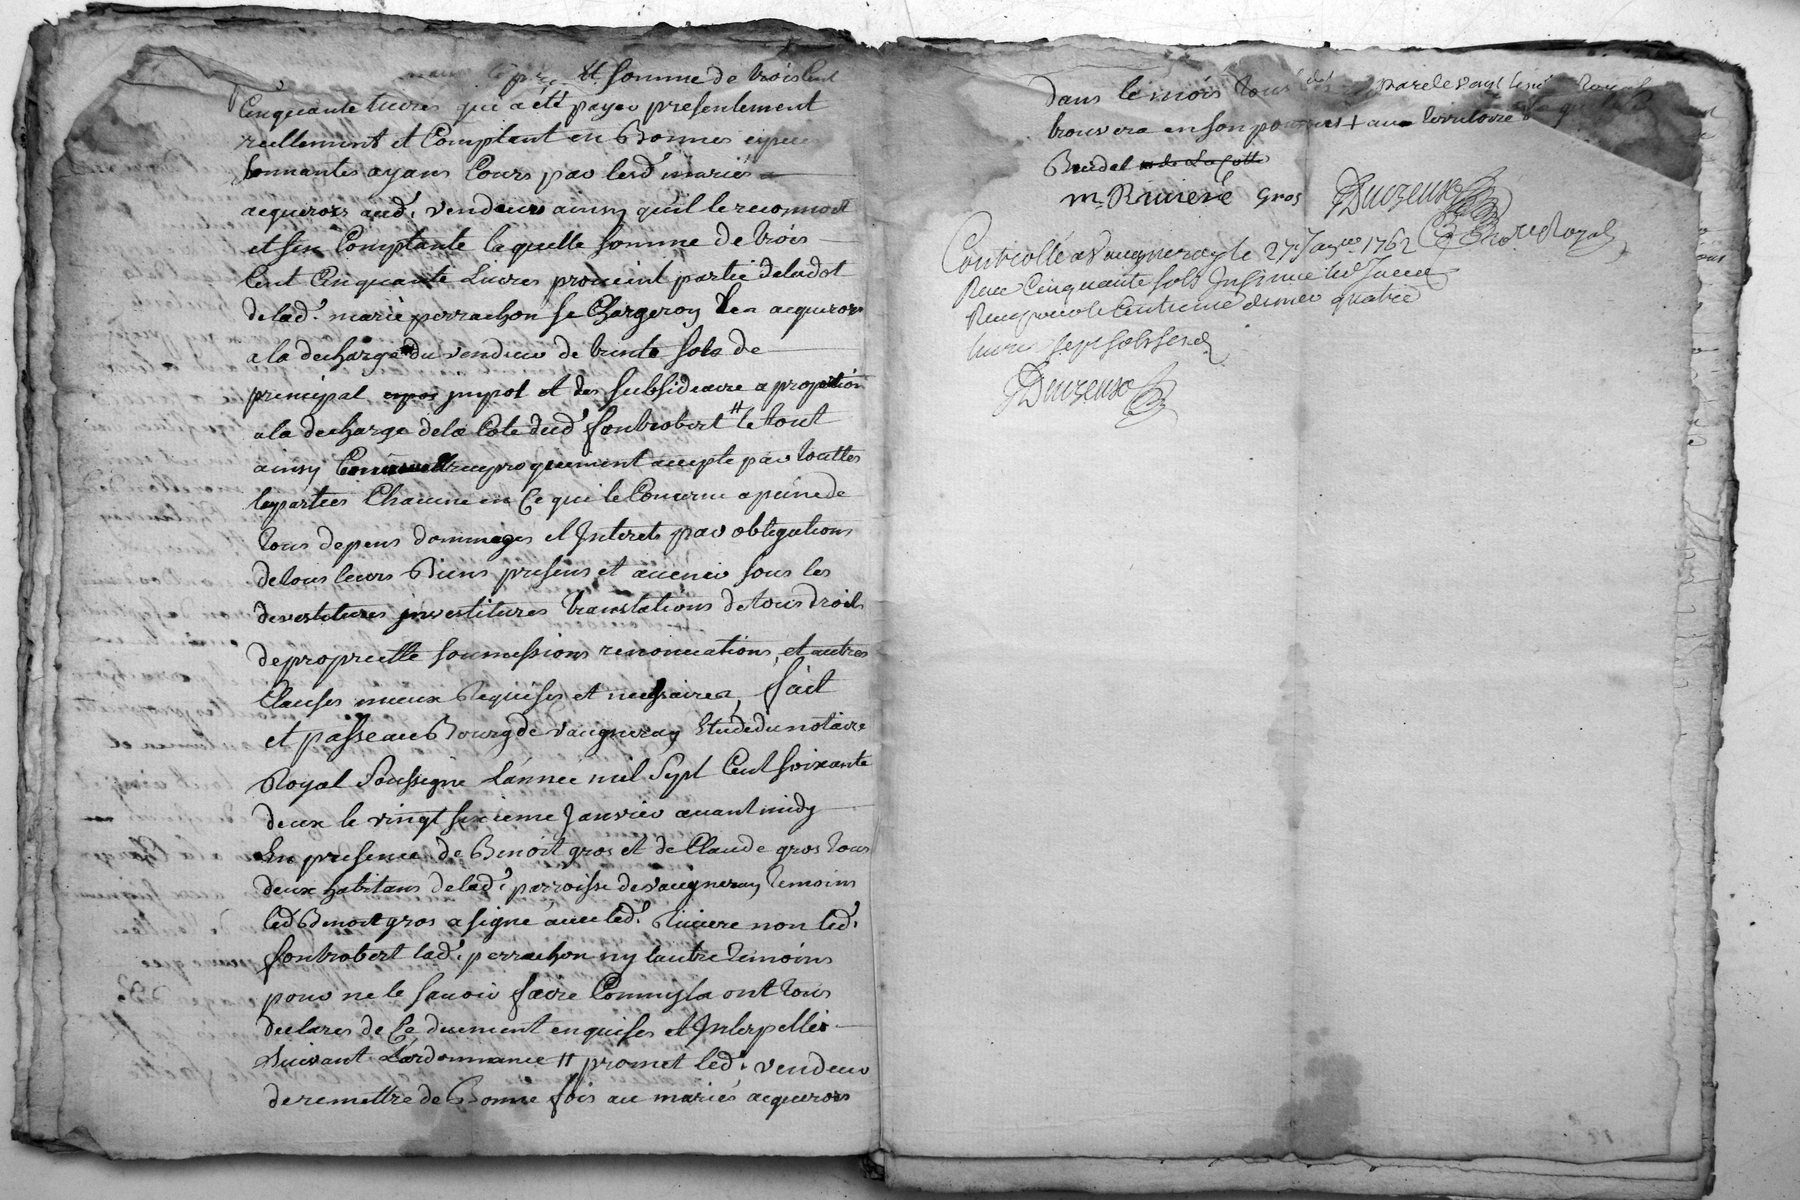 prix et somme de trois Cent
Cinquante livres qui a été payeé presentement
reellement et Comptant en Bonnes especes
sonnantes ayans Cours par lesd. mariés
acquerors aud. vendeur ainsy qu'il le reconnoit
et sen Comptante laquelle somme de trois
Cent Cinquante Livres provient partie de la dot
de lad. marie perrachon se Chargeron les acquerors
a la decharge du vendeur de trente sols de
principal impot et des subsideaire a proportion
a la decharge de la Cote dud. fontrobert # le tout
ainsy reciproquement accepté par touttes
les parties Chacune en Ce qui le Concerne a peine de
tous depens dommages et Interets par obligations
de tous leurs Biens presens et avenir sous les
devestitures investitures translations de tous droits
de proprietté soumissions renonciations et autres
Clauses mieux Requises et necessaires, fait
et passé au Bourg de vaugneray Etude du notaire
Royal soussigné L'année mil sept Cent soixante
deux le vingt sixieme Janvier avant midy
En presence de Benoit gros et de Claude gros tous
deux habitans de lad. parroisse de vaugneray temoins
led. Benoit gros a signé avec led. Riviere non led.
fontrobert lad. perrachon ny lautre temoins
pour ne le savoir faire Comm'ils ont tous
declarés de Ce duement enquises et Interpellés
suivant L'ordonnance # promet led. vendeur
de remettre de Bonne fois au mariés acquerors
Dans le mois tous les
trouvera en son pouvoir + au territoire
Burdel
m. Riviere Gros
Controllé a Vaugneray le 27e Janvier 1762
Recu Cinquante sols Insinué led. Jour
Recu pour le Centieme denier quatre
livres sept sols six d.